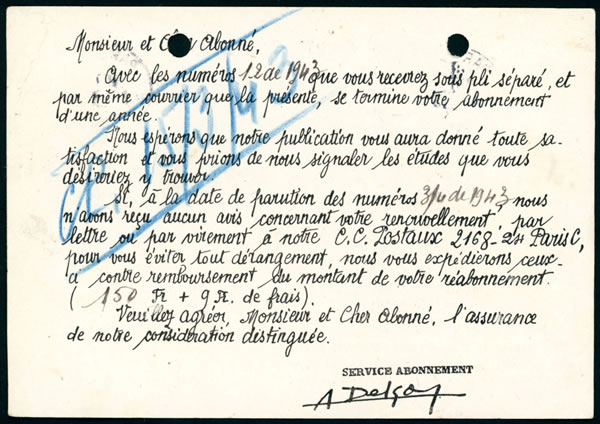 Monsieur et Cher Abonné,
Avec les numéros 12 de 1943 que vous recevrez sous pli séparé, et
par même courrier que la présente, se termine votre abonnement
d'une année.
Nous espérons que notre publication vous aura donné toute sa-
tisfaction et vous prions de nous signaler les études que vous
désireriez y trouver.
Si, à la date de parution des numéros 3/4 de 1943 nous
n'avons reçu aucun avis concernant votre renouvellement, par
lettre ou par virement à notre C.C. Postaux 2168-24 Paris C,
pour vous éviter tout dérangement, nous vous expédierons ceux-
ci contre remboursement du montant de votre réabonnement.
(150 Fr + 9 Fr. de frais).
Veuillez agréer, Monsieur et Cher Abonné, l'assurance
de notre considération distinguée.
SERVICE ABONNEMENT